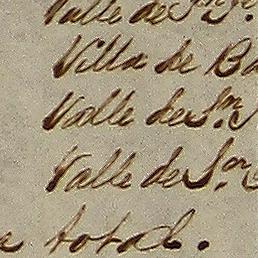 Valle de Sn. Je
Villa de Ba
Valle de Sn.
Valle de Sn.
a total.